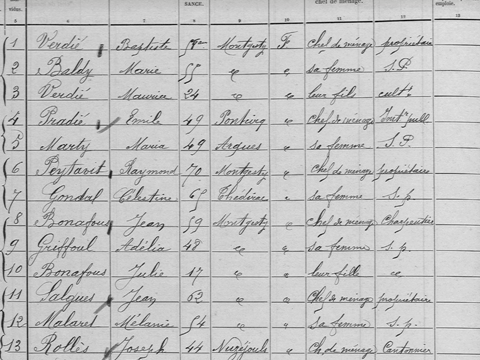 SANCE. chef de ménage. emploie.
5 6 7 8 9 10 11 12 13
1 Verdié Baptiste Montgesty F chef de ménage propriétaire
2 Baldy Marie 55 " " sa femme S.P.
3 Verdié Maurice 24 " " leur fils cult.
4 Pradié Emile 49 " chef de ménage
5 Marty Maria 49 " sa femme S.P.
6 Raymond 70 Montgesty " chef de ménage propriétaire
7 Gondal Célestine 65 Thédirac " sa femme s.p.
8 Bonafous Jean 59 Montgesty " chef de ménage Charpentier
9 Griffoul Adélia 48 " " sa femme s.p.
10 Bonafous Julie 17 " " leur fille "
11 Salgues Jean 62 " " chef de ménage propriétaire
12 Malaret Mélanie 54 " " sa femme s.p.
13 Rollès Joseph 44 " Ch. de ménage Cantonnier